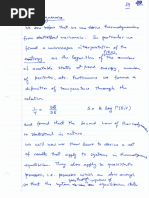 We have seen that we can derive thermodynamics
from statistical mechanics. In particular we
found a microscopic interpretation of the
entropy as the logarithm of the number
of available states at fixed energy, number
of particles, etc. Furthermore we found a
definition of temperature through the
relation
1/T = ∂S/∂E S = k log Γ(E,V)
and found that the second law of thermodyn
is statistical in nature.
We will now use these to derive a set
of results that apply to systems in thermodyn
equilibrium. They also apply to quasi-static
processes, i.e. processes which are slow enough
so that the system equilibrium state